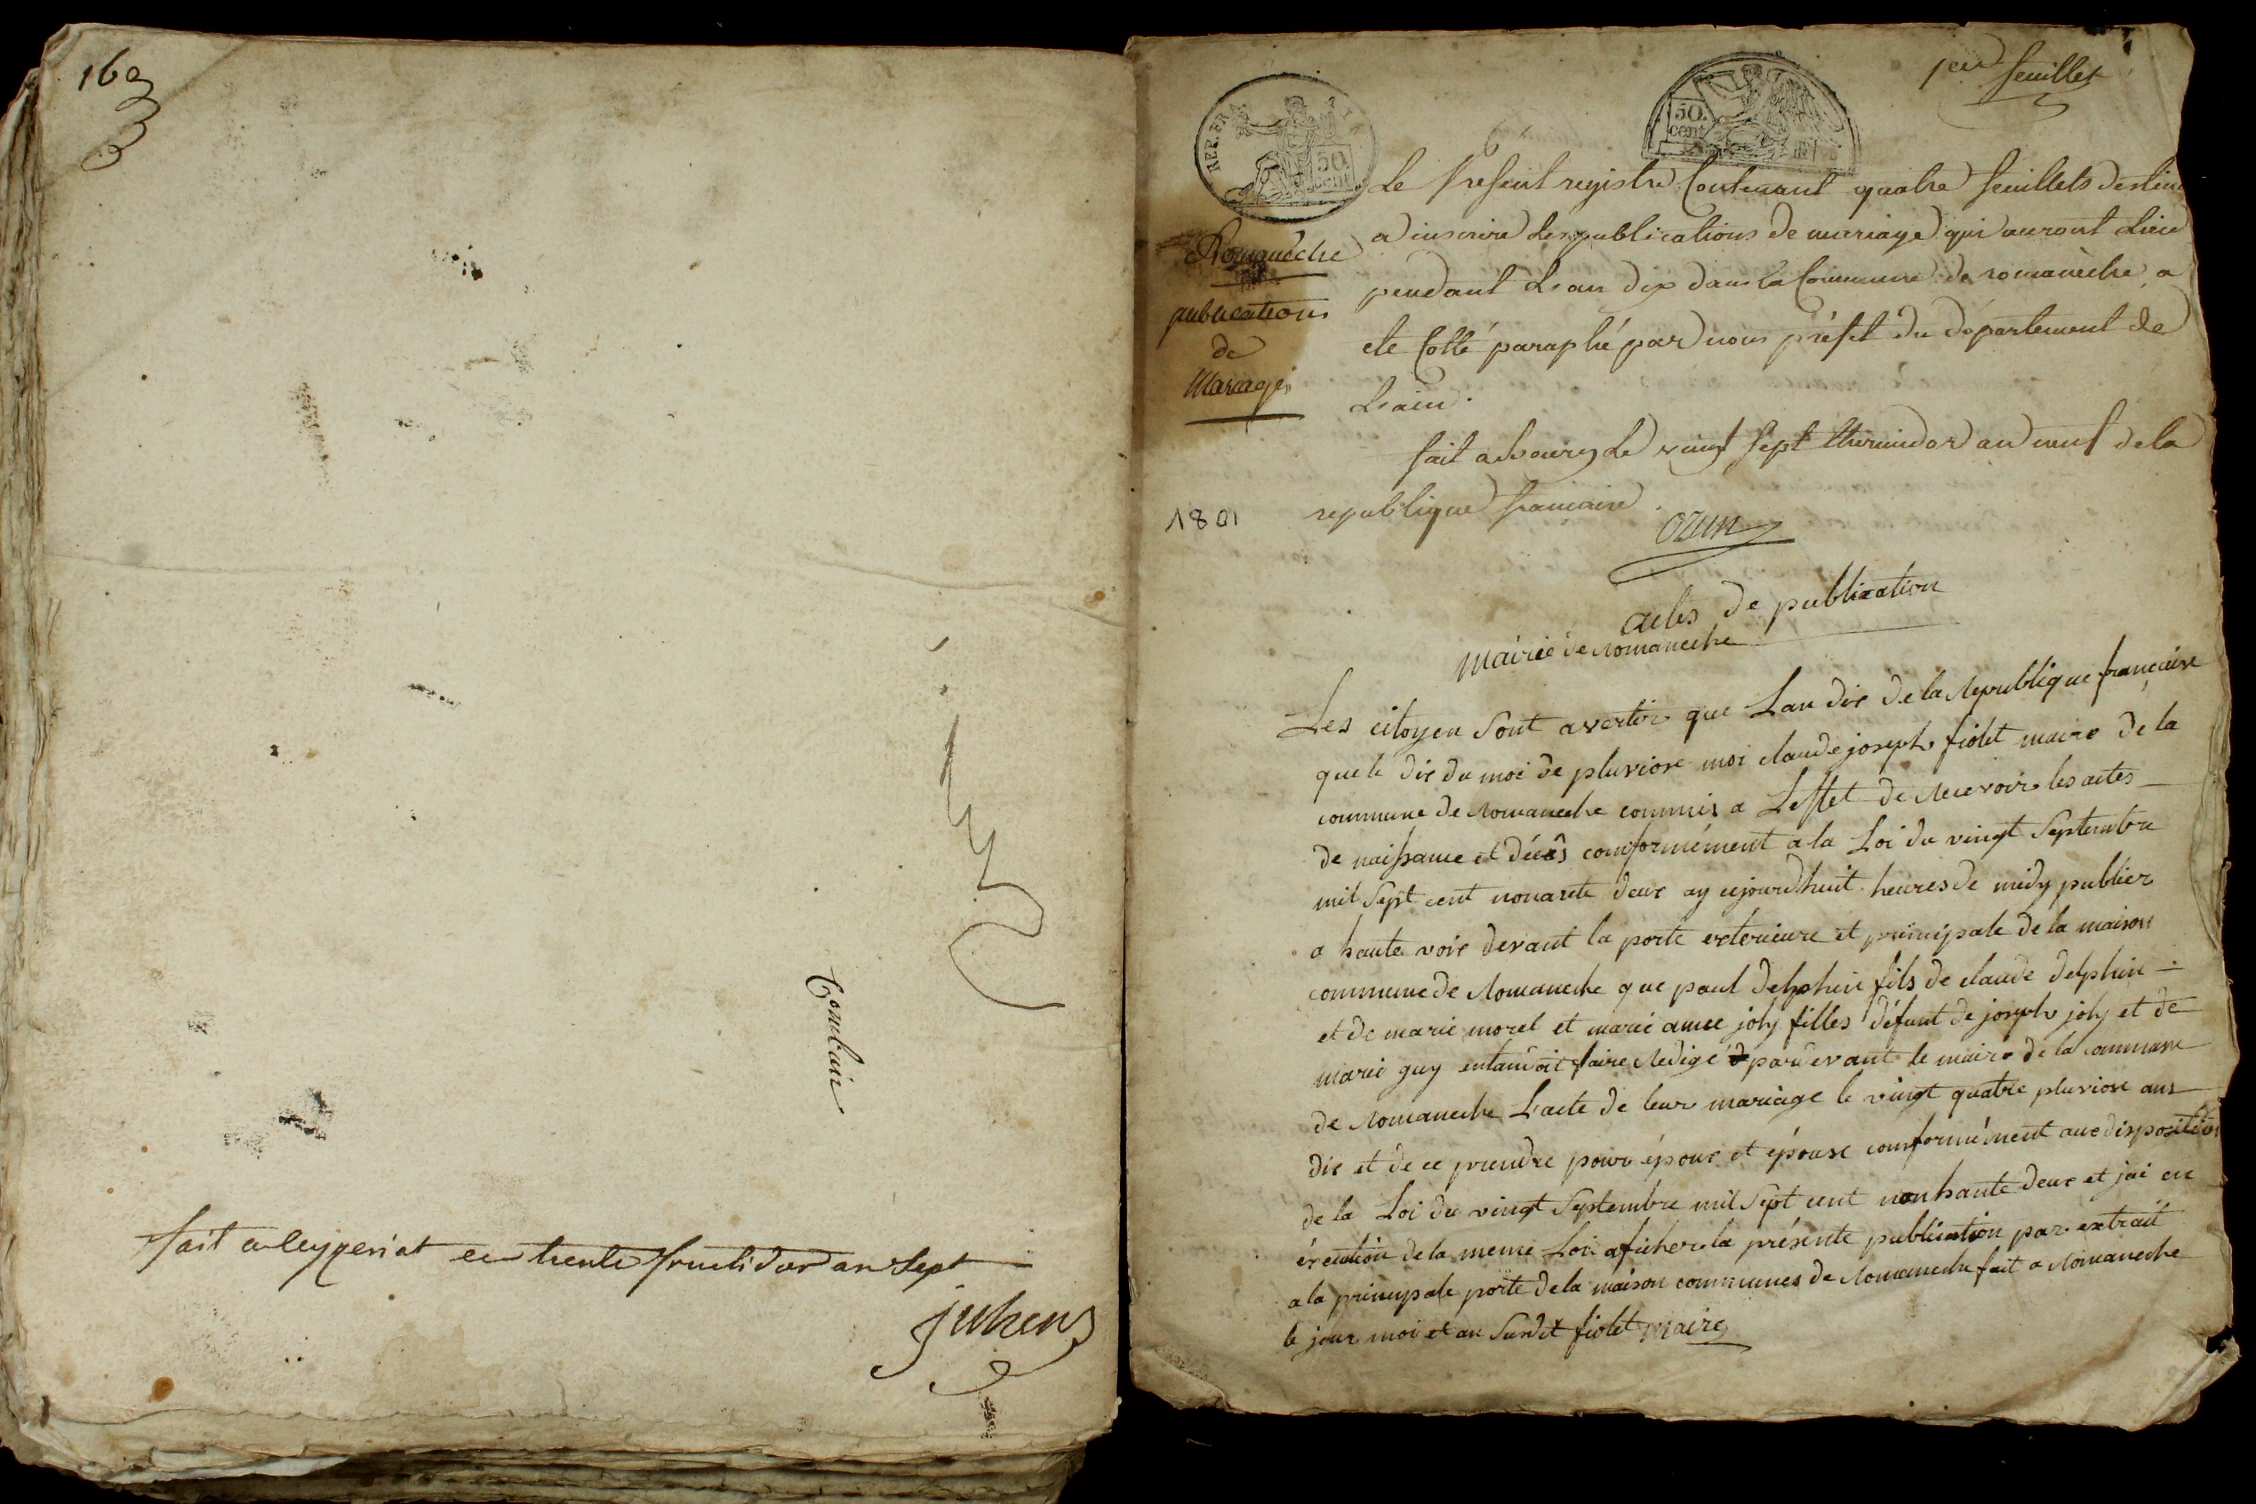 169
Comban
fait a leyzeriat ce trente fructidor an sept
juhen
1er feuillet
REP. FRA.
50
cent
50.
cent
Le present registre Contenant quatre feuillets destiné
a inscrire les publications de mariage qui auront Lieu
pendant L'an dix dans la Commune de romanèche, a
ete Cotté paraphé par nous préfet du département de
L'ain.
Romanèche
publications
de
Mariage
fait a bourg Le vingt sept thermidor an neuf de la
republique francaise.
1801
ozun
actes de publication
Mairie de Romaneche
Les citoyen Sont avertir que Lan dix de la Republique française
que le dix du moi de pluviose moi claude joseph fiolet maire de la
commune de Romaneche commis a Leffet de Recevoir les actes
de naissance et décês comformément a la Loi du vingt Septembre
mil Sept cent nonante deux ay aujourdhuit heures de midy publier
a haute voix devant la porte exterieure et principale de la maison
commune de Romaneche que paul delphin fils de claude delphin
et de marie morel et marie amee joly filles défunt de joseph joly et de
marie guy entandoit faire Redigé pardevant le maire de la commune
de Romaneche L'acte de leur mariage le vingt quatre pluviose ans
dix et de ce prendre pour époux et épouse comformément aux disposition
de la Loi du vingt Septembre mil Sept cent nonhante deux et jai en
éxecution de la meme Loi aficher la présente publication par extrait
a la principale porte de la maison communes de Romaneche fait a Romaneche
le jour moi et an Susdit fiolet Maire